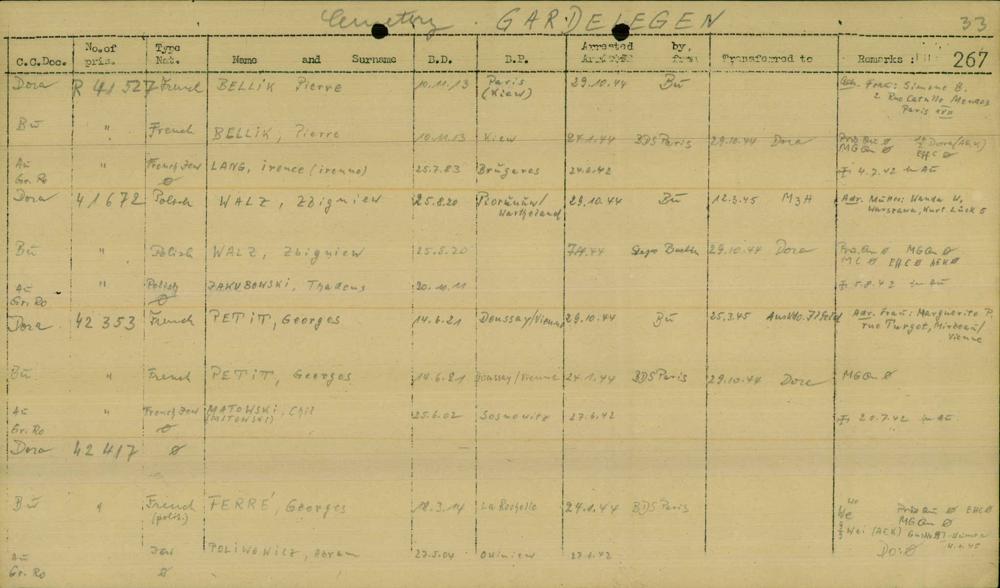 Cemetery GARDELEGEN 33
C.C.Doc. No. of pris. Type Nat. Name and Surname B.D. B.P. Arrested by, from Transferred to Remarks : 267
Dora R 41 527 French BELLIK Pierre 10.11.13 Paris (Kiew) 29.10.44 Bu Frau: Simone B.
2 Rue Catulle Mendes
Paris
Bu " French BELLIK, Pierre 10.11.13 Kiew 24.1.44 BDS Paris 29.10.44 Dora Dora (AEK)
MGQu ø EHC ø
Au Gr. Ro French Jew ø LANG, irence (irenne) 25.7.83 24.6.42 4.7.42 in Au
Dora 41672 Polish WALZ, Zbigniew 25.8.20 Wartheland 29.10.44 Bu 12.3.45 Adr. Mutter: Wanda W.
Warszawa, Kurt Lück 5
Bu " Polish WALZ, Zbigniew 25.8.20 29.10.44 Dora MGQu ø
MC ø EHC ø AEK ø
Au Gr. Ro " Polish ø JAKUBOWSKI, Thadeus 20.10.11 5.8.42 in Au
Dora 42 353 French PETIT, Georges 14.6.21 Doussay/Vienne 29.10.44 Bu 25.3.45 Auskdo. Ilfeld Adr. Frau: Marguerite P.
rue Turgot, Mirbeau/
Vienne
Bu " French PETIT, Georges 14.6.21 Doussay/Vienne 24.1.44 BDS Paris 29.10.44 Dora MGQu ø
Au Gr. Ro " French Jew ø MATOWSKI, Chil (MITOWSKI) 25.6.02 Sosnowitz 27.6.42 20.7.42 in Au
Dora 42 417 ø
Bu " French (polit.) FERRÉ, Georges 18.3.14 La Rochelle 24.1.44 BDS Paris EHC ø
MGQu ø
Wei (AEK)
Do: ø
Au Gr. Ro Jew ø POLIWOWICZ, Abram 27.5.04 27.6.42